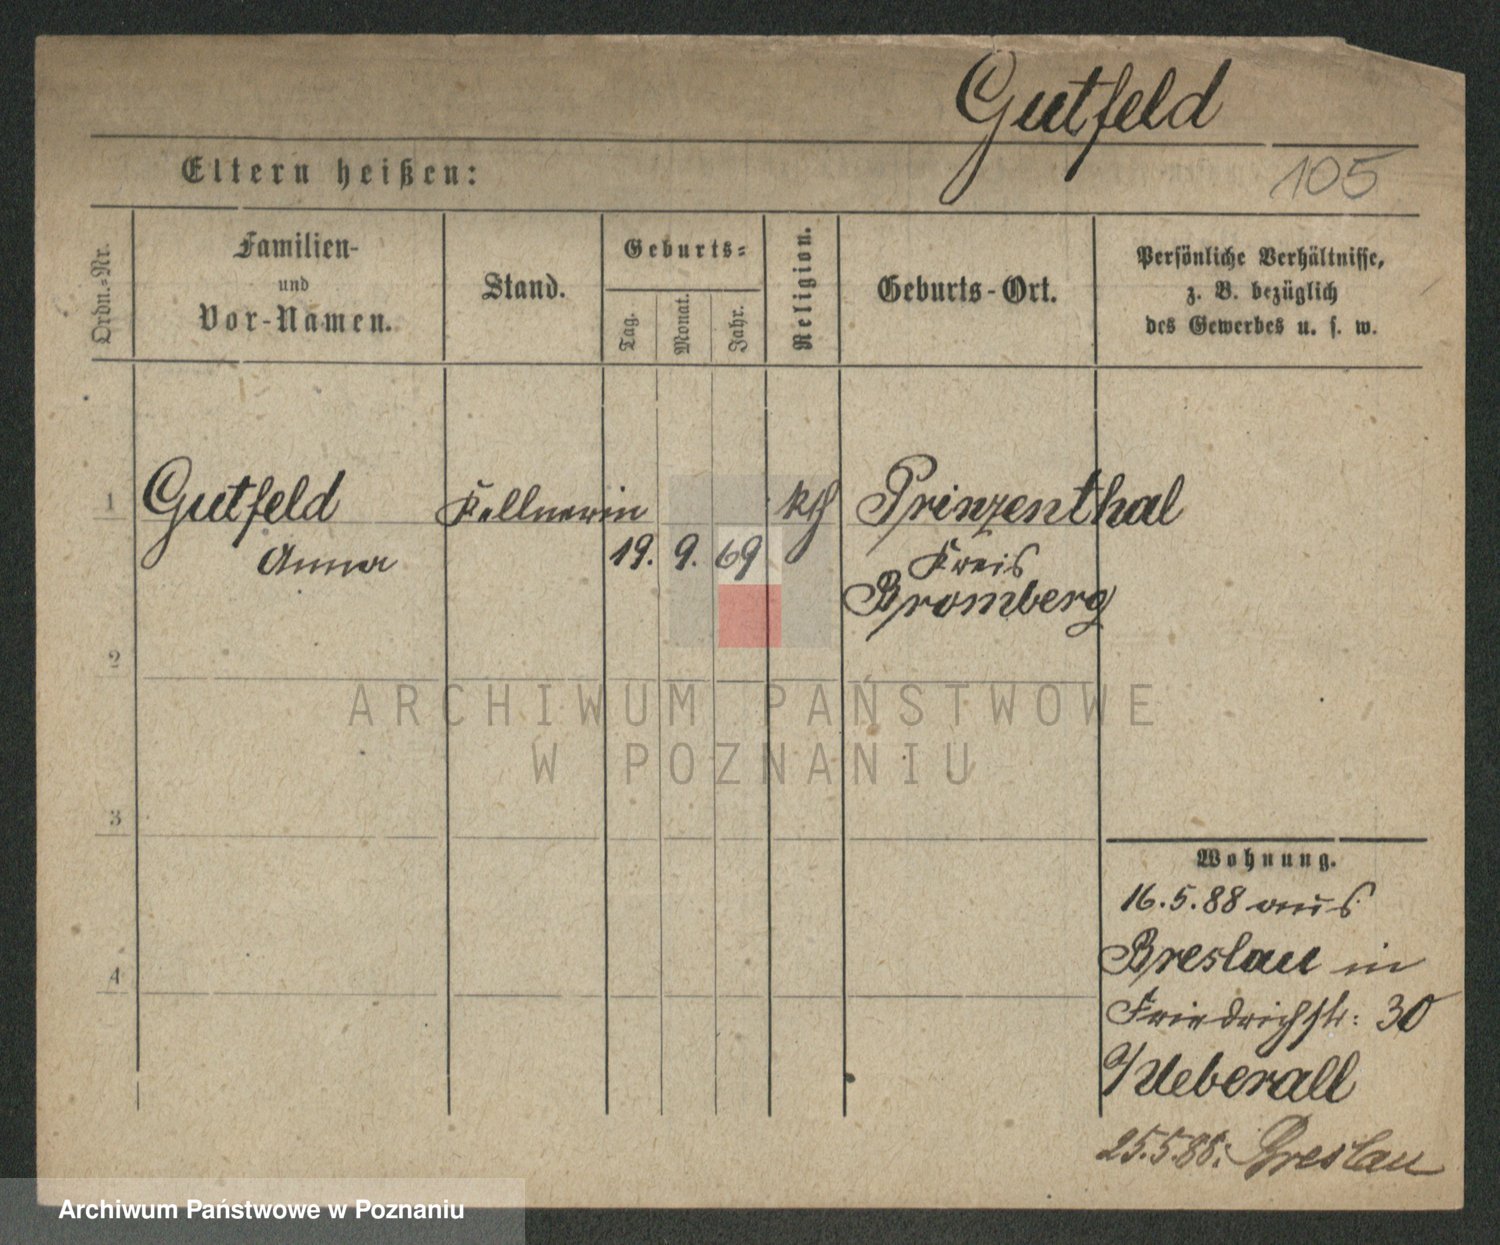 Gutfeld
105
Eltern heißen:
Ordn.-Nr.
Familien-
und
Vor-Namen.
Stand.
Geburts-
Tag.
Monat.
Jahr.
Religion.
Geburts-Ort.
Persönliche Verhältnisse,
z. B. bezüglich
des Gewerbes u. s. w.
1
Gutfeld
Anna
Kellnerin
19. 9. 69
kth
Prinzenthal
Kreis
Bromberg
2
3
4
ARCHIWUM PAŃSTWOWE
W POZNANIU
Wohnung.
16.5.88 aus
Breslau in
Friedrichstr: 30
b/ Ueberall
25.5.88: Breslau
Archiwum Państwowe w Poznaniu